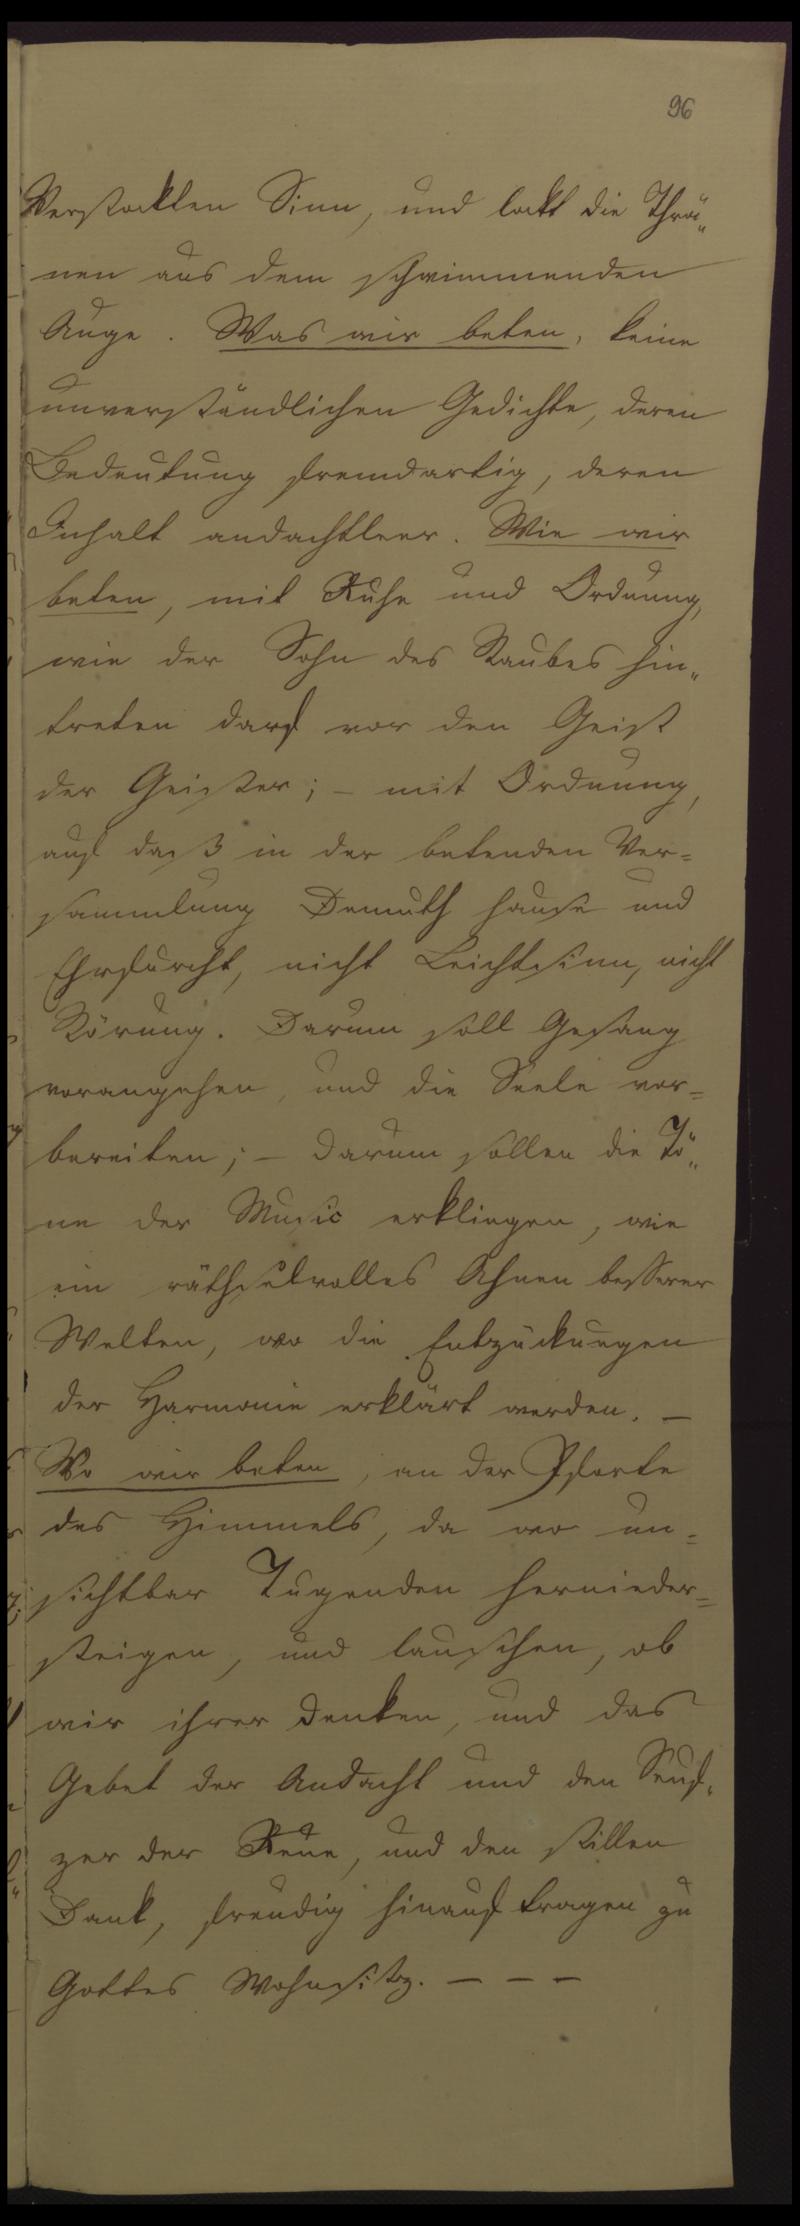 96
Verstockten Sinn, und lockt die Thrä„
nen aus dem schwimmenden
Auge. Was wir beten, keine
unverständlichen Gedichte, deren
Bedeutung fremdartig, deren
Inhalt andachtleer. Wie wir
beten, mit Ruhe und Ordnung,
wie der Sohn des Staubes hin„
treten darf vor den Geist
der Geister; – mit Ordnung,
auf daß in der betenden Ver=
sammlung Demuth hause und
Ehrfurcht, nicht Leichtsinn, nicht
Störung. Darum soll Gesang
vorangehen, und die Seele vor=
bereiten; – darum sollen die Tö„
ne der Music erklingen, wie
ein räthselvolles Ahnen besserer
Welten, wo die Entzückungen
der Harmonie erklärt werden. –
Wo wir beten, an der Pforte
des Himmels, da wo un=
sichtbar Tugenden hernieder=
steigen, und lauschen, ob
wir ihrer denken, und das
Gebet der Andacht und den Seuf„
zer der Reue, und den stillen
Dank, freudig hinauf tragen zu
Gottes Wohnsitz. – – –